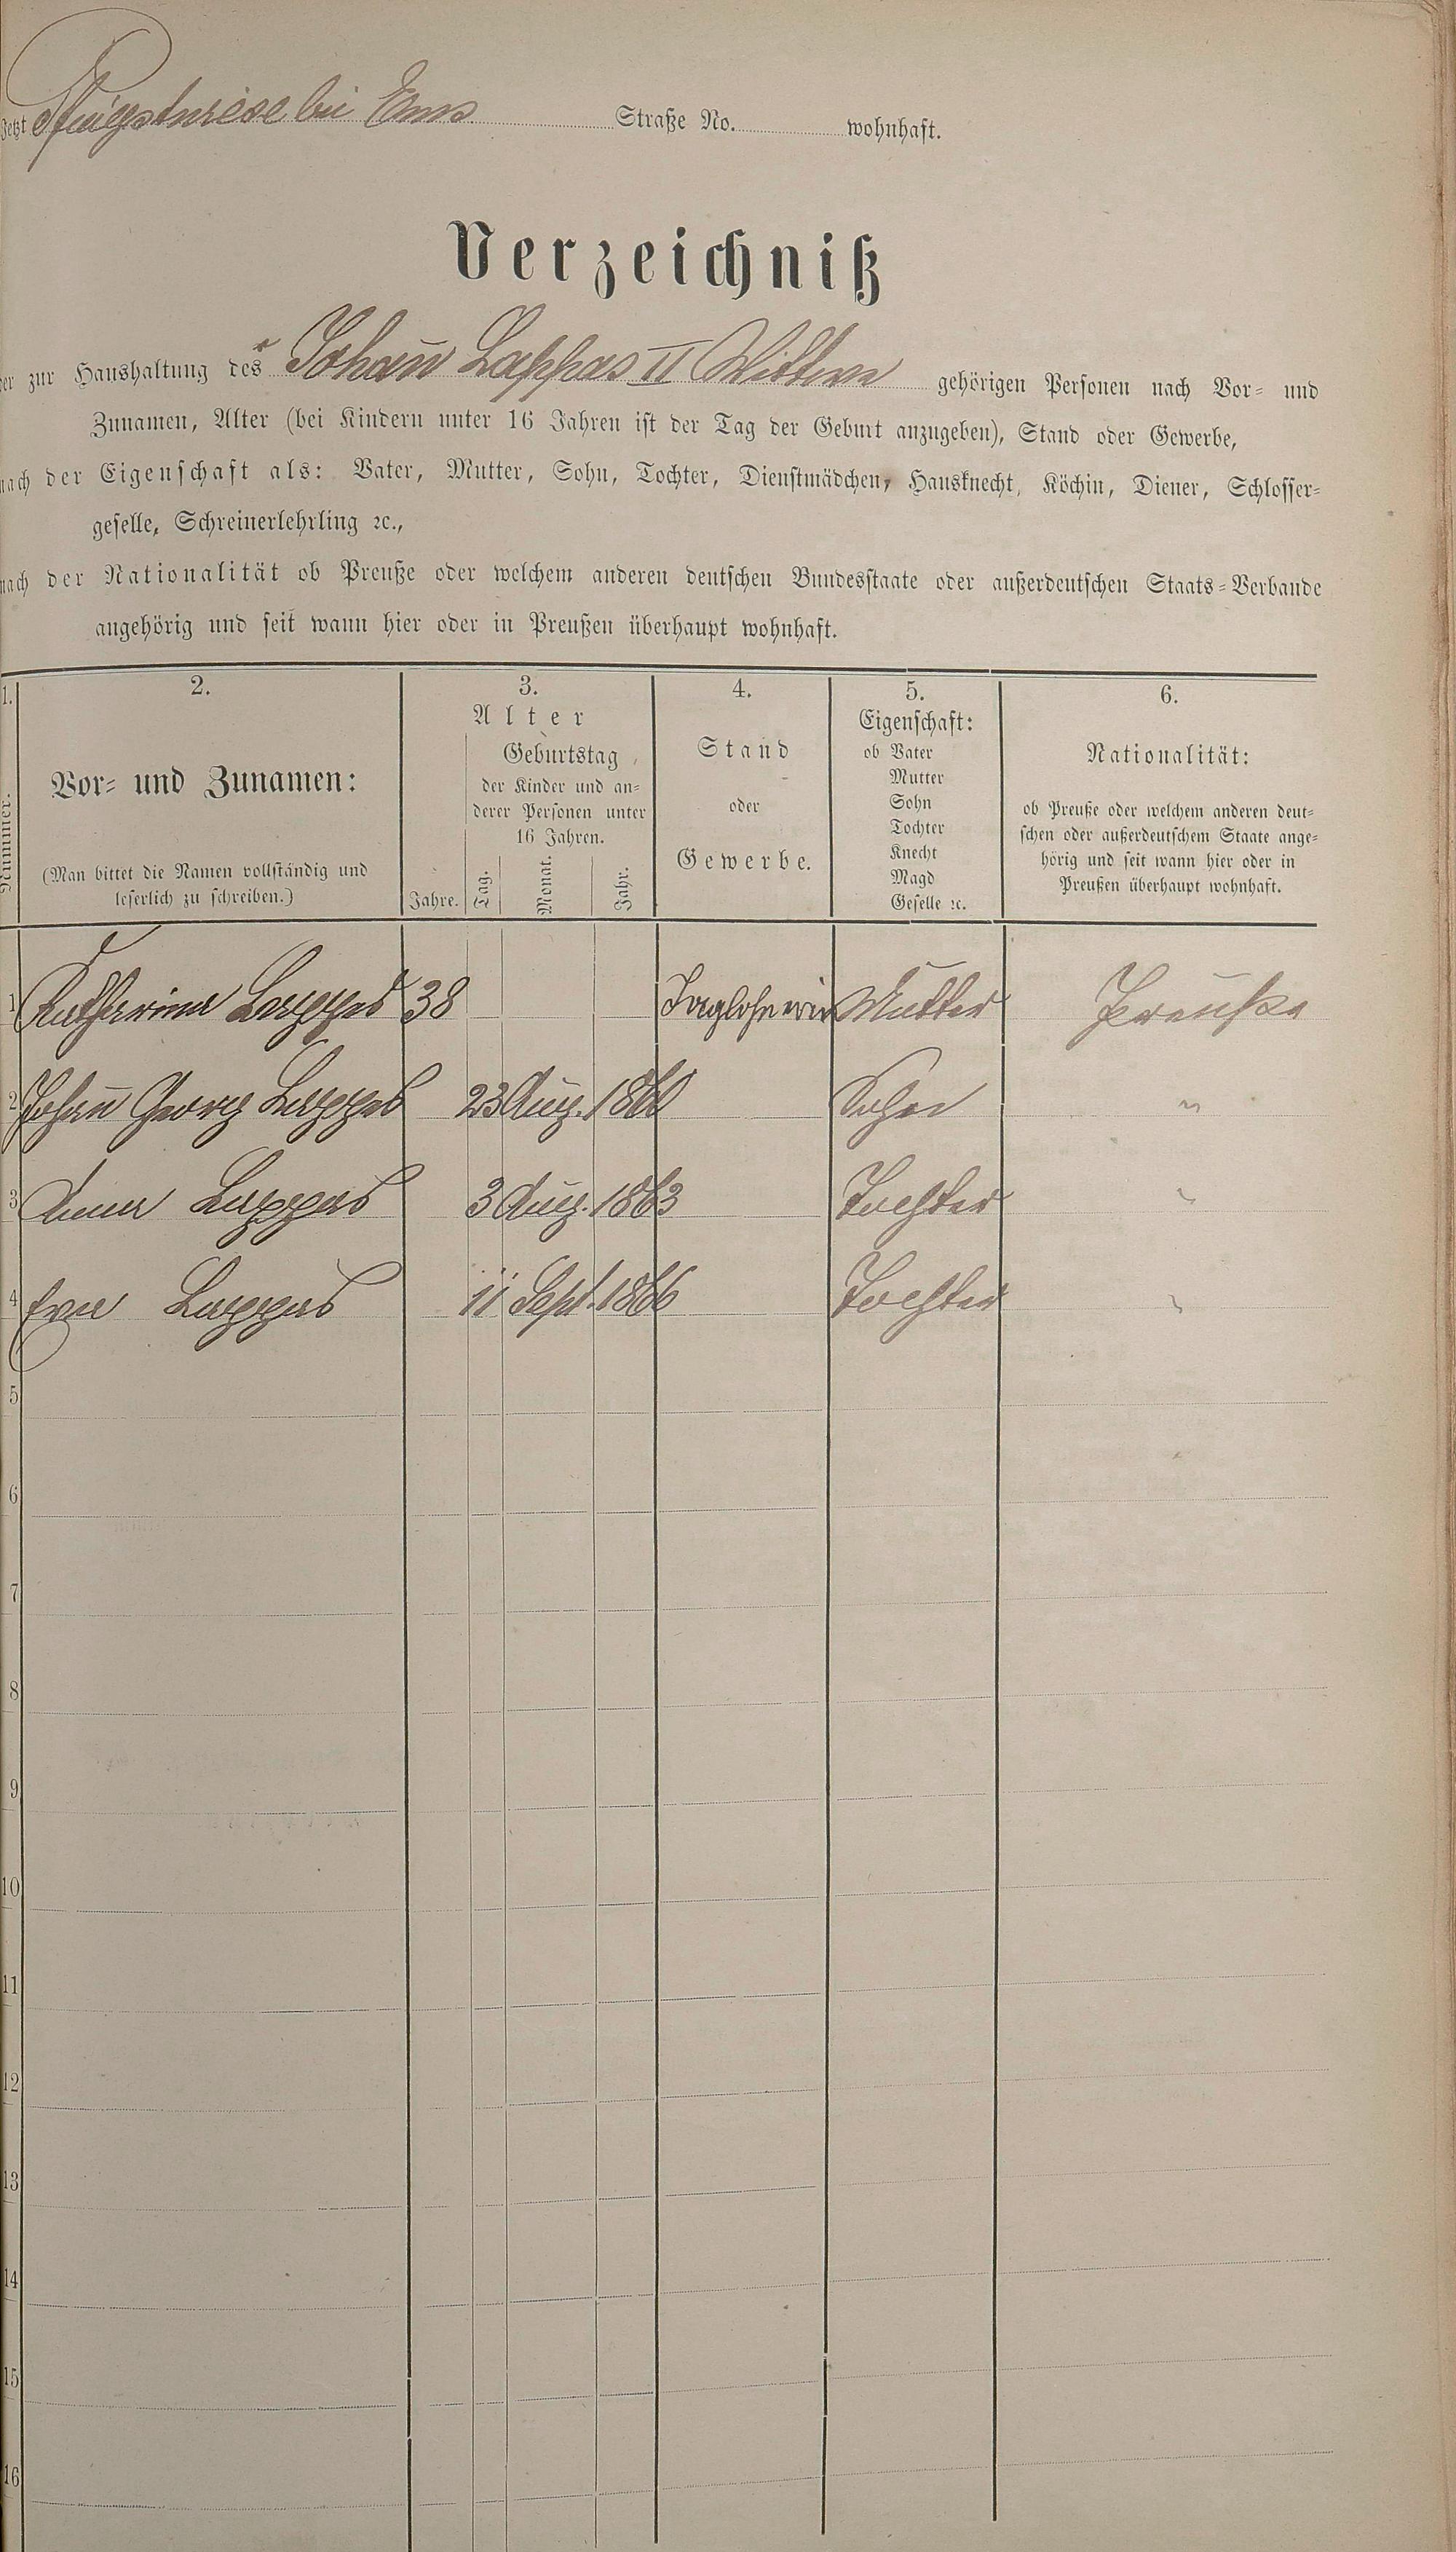 Jetzt Pfingstwiese bei Ems Straße No. wohnhaft.
Verzeichniß
der zur Haushaltung des r Johañ Lappas II Wittwe gehörigen Personen nach Vor- und
Zunamen, Alter (bei Kindern unter 16 Jahren ist der Tag der Geburt anzugeben), Stand oder Gewerbe,
nach der Eigenschaft als: Vater, Mutter, Sohn, Tochter, Dienstmädchen, Hausknecht, Köchin, Diener, Schlosser-
geselle, Schreinerlehrling ꝛc.,
nach der Nationalität ob Preuße oder welchem anderen deutschen Bundesstaate oder außerdeutschen Staats-Verbande
angehörig und seit wann hier oder in Preußen überhaupt wohnhaft.
1. 2. 3. 4. 5. 6.
Nummer.
Vor- und Zunamen:
(Man bittet die Namen vollständig und
leserlich zu schreiben.)
Alter
Jahre.
Geburtstag
der Kinder und an-
derer Personen unter
16 Jahren.
Tag. Monat. Jahr.
Stand
oder
Gewerbe.
Eigenschaft:
ob Vater
Mutter
Sohn
Tochter
Knecht
Magd
Geselle ꝛc.
Nationalität:
ob Preuße oder welchem anderen deut-
schen oder außerdeutschem Staate ange-
hörig und seit wann hier oder in
Preußen überhaupt wohnhaft.
1 Katharina Lappas 38 Taglohnerin Mutter Preuße
2 Johañ Georg Lappas 23 Aug. 1860 Sohn "
3 Anna Lappas 3 Aug. 1863 Tochter "
4 Eva Lappas 11 Sept. 1866 Tochter "
5
6
7
8
9
10
11
12
13
14
15
16